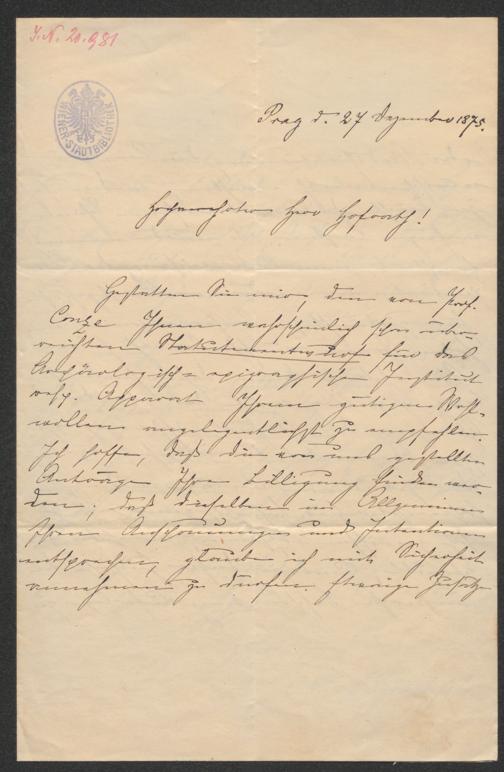 J.N. 20.981
WIENER-STADTBIBLIOTHEK
Prag d. 27 Dezember 1875.
Hochverehrter Herr Hofrath!
Gestatten Sie mir, den von Prof.
Conze Ihnen wahrscheinlich schon über-
reichten Statutenentwurf für das
Archäologisch-epigraphische Institut
resp. Apparat Ihrem gütigen Wohl-
wollen angelegentlichst zu empfehlen.
Ich hoffe, daß die von uns gestellten
Anträge Ihre Billigung finden wer-
den; daß dieselben im Allgemeinen
Ihren Anschauungen und Intentionen
entsprechen, glaube ich mit Sicherheit
annehmen zu dürfen. Etwaige Zusätze